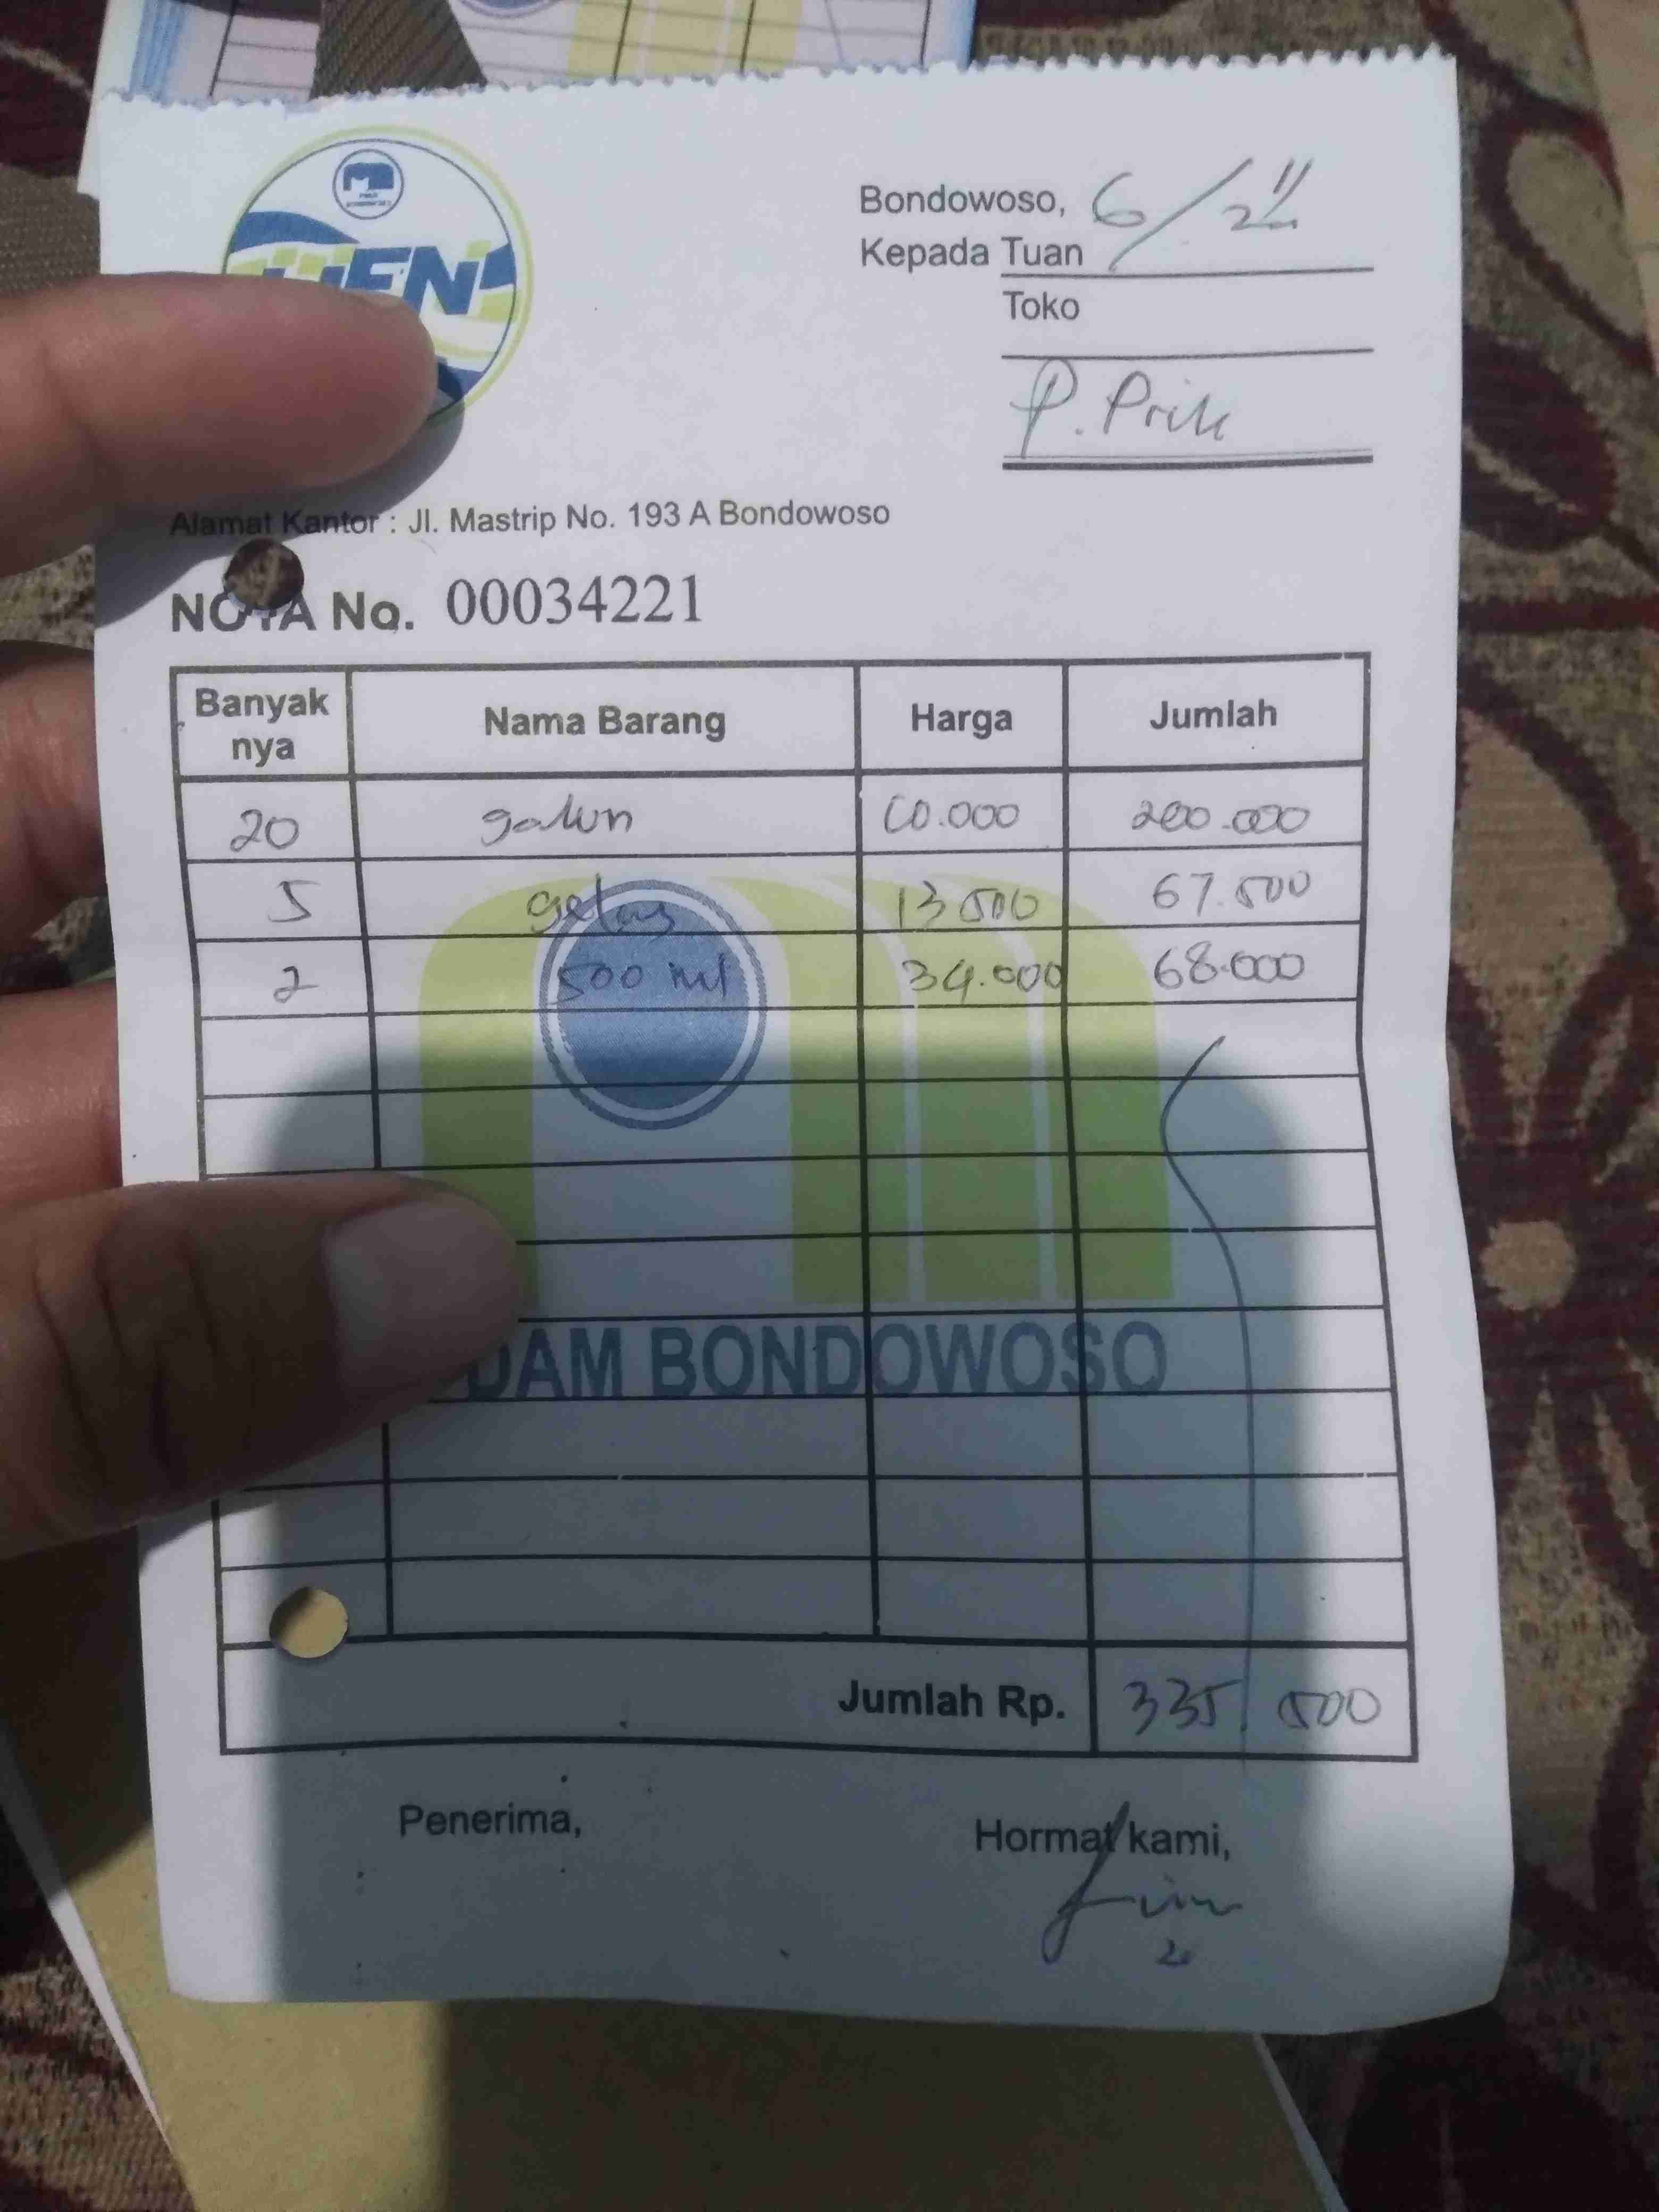 Bondowoso, 6/11
Kepada Tuan
Toko
Alamat Kantor : Jl. Mastrip No. 193 A Bondowoso
NOTA No. 00034221
Banyak nya Nama Barang Harga Jumlah
20 galon 10.000 200.000
5 gelas 13.500 67.500
2 500 ml 34.000 68.000
BONDOWOSO
Jumlah Rp. 335.500
Penerima, Hormat kami,